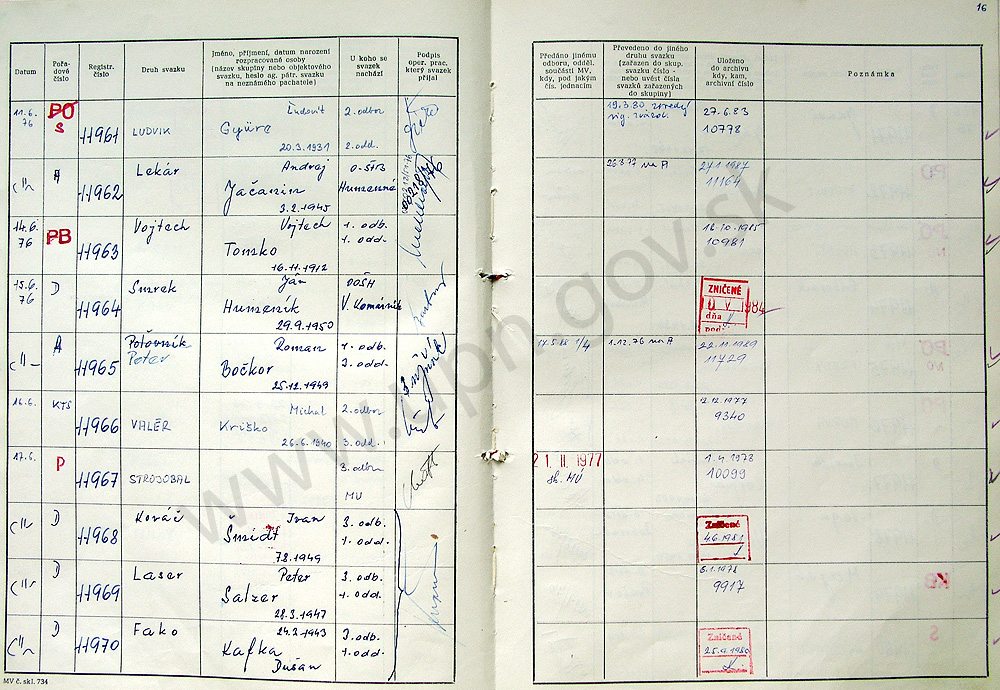 16
Datum
Pořa-
dové
číslo
Registr.
číslo
Druh svazku
Jméno, příjmení, datum narození
rozpracované osoby
(název skupiny nebo objektového
svazku, heslo ag. pátr. svazku
na neznámého pachatele)
U koho se
svazek
nachází
Podpis
oper. prac.
který svazek
přijal
Předáno jinému
odboru, odděl.
součásti MV,
kdy, pod jakým
čís. jednacím
Převedeno do jiného
druhu svazku
(zařazen do skup.
svazku číslo -
nebo uvést čísla
svazků zařazených
do skupiny)
Uloženo
do archivu
kdy, kam,
archivní číslo
Poznámka
11.6.
76
PO
S
11961
LUDVIK
Ľudovít
Gyüre
20.3.1931
2. odbor
2. odd.
19.3.80
27.6.83
10778
A
11962
Lekár
Andrej
Jačanin
3.2.1945
O-ŠTB
Humenné
na A
11164
14.6.
76
PB
11963
Vojtech
Vojtech
Tomko
16.11.1912
1. odb.
1. odd.
16.10.1985
10981
15.6.
76
D
11964
Smrek
Ján
Humeník
29.9.1950
OOŠH
V. Komárnik
ZNIČENÉ
V 1984
dňa
A
11965
Poľovník
Peter
Roman
Bočkor
25.12.1949
1. odb.
1.12.76 na A
22.11.1989
11729
16.6.
KTS
11966
VALÉR
Michal
Kriško
26.6.1940
2. odbor
3. odd.
12.12.1977
9340
17.6.
P
11967
STROJOBAL
3. odbor
MU
21 II. 1977
1.4.1978
10099
D
11968
Kováč
Ivan
Šmidt
7.2.1949
3. odb.
1. odd.
Zničené
4.6.1981
D
11969
Laser
Peter
Salzer
28.3.1947
3. odb.
1. odd.
5.1.1978
9917
D
11970
Fako
24.2.1943
Kafka
Dušan
3. odb.
1. odd.
Zničené
25.9.1980
MV č. skl. 734
www.upn.gov.sk